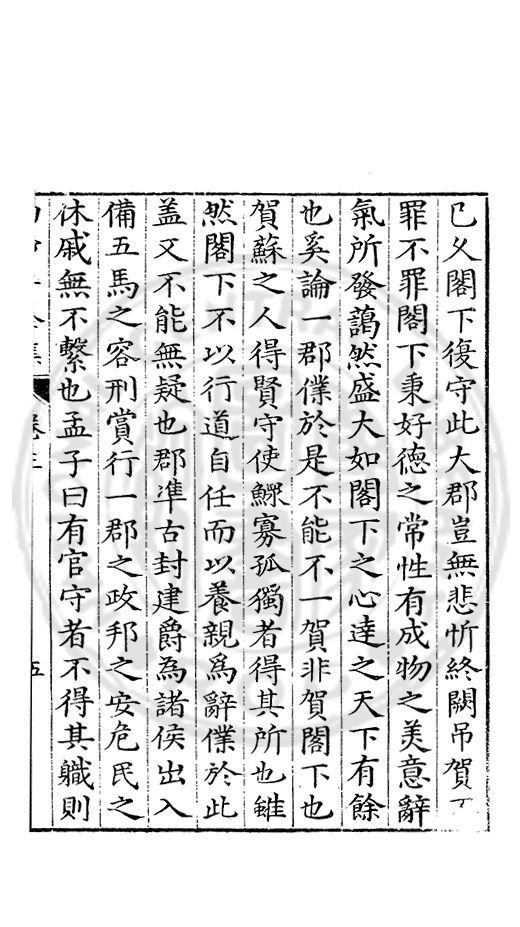 已久閣下復守此大郡豈無悲忻終闕吊賀
罪不罪閣下秉好德之常性有成物之美意辭
氣所發藹然盛大如閣下之心達之天下有餘
也奚論一郡僕於是不能不一賀非賀閣下也
賀蘇之人得賢守使鰥寡孤獨者得其所也雖
然閣下不以行道自任而以養親爲辭僕於此
盖又不能無疑也郡凖古封建爵為諸侯出入
備五馬之容刑賞行一郡之政邦之安危民之
休戚無不繫也孟子曰有官守者不得其軄則
集
卷三
五